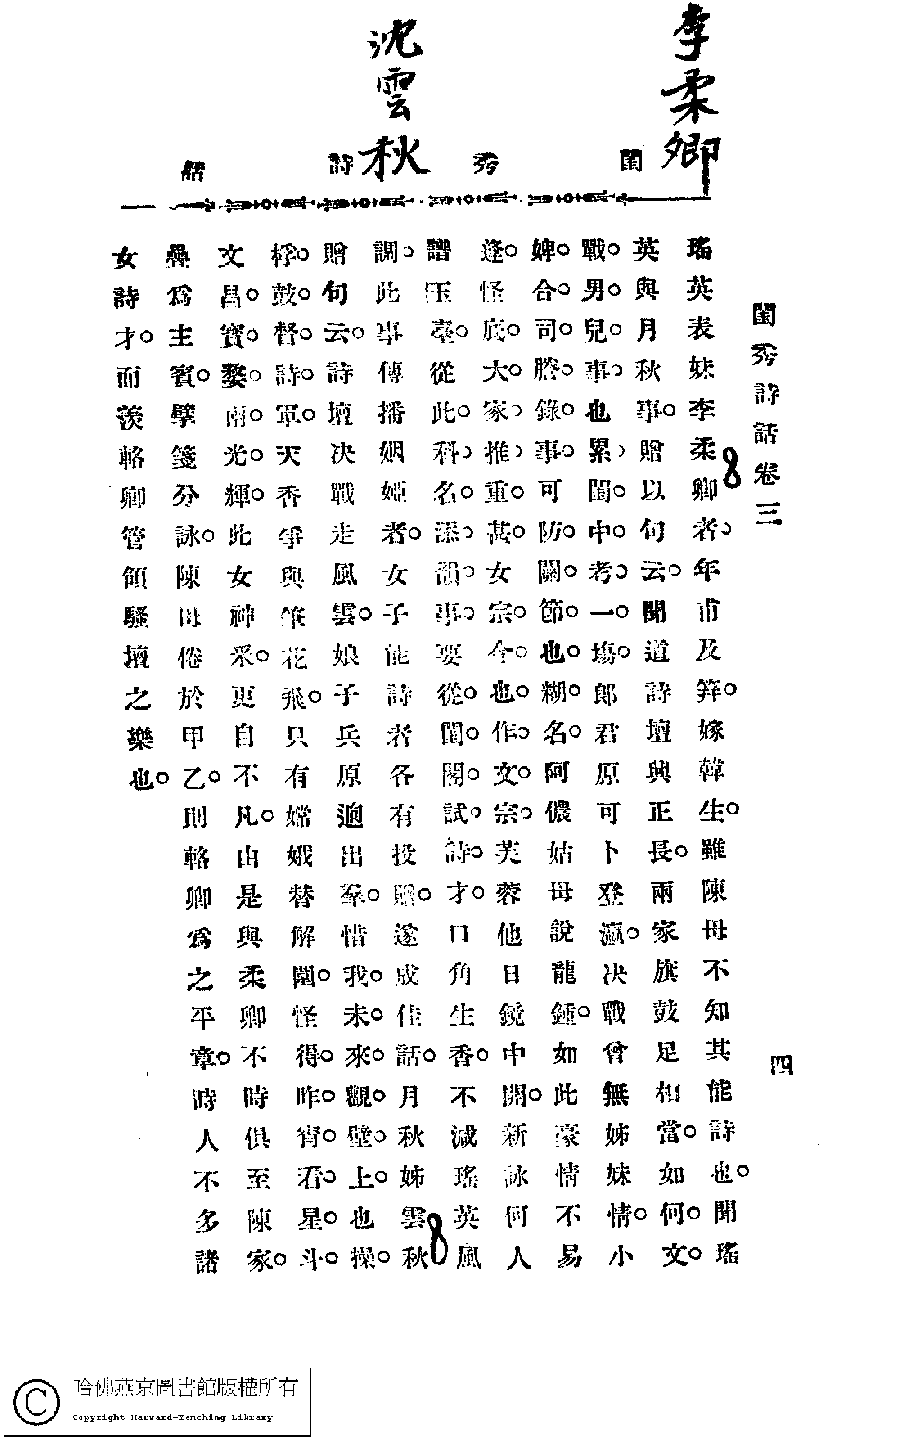 李柔卿
沈雲秋
閨秀詩話
閨秀詩話卷三
四
瑤英表妹李柔卿者年甫及笄嫁韓生雖陳母不知其能詩也聞瑤
英與月秋事贈以句云聞道詩壇興正長兩家旗鼓足相當如何文
戰男兒事也累閨中考一塲郎君原可卜登瀛决戰曾無姊妹情小
婢合司謄錄事可防關節也糊名阿儂姑母說龍鍾如此豪情不易
逢怪底大家推重甚女宗今也作文宗芙蓉他日鏡中開新詠何人
譜玉臺從此科名添韻事要從閨閣試詩才口角生香不减瑤英風
調此事傳播姻婭者女子能詩者各有投贈遂成佳話月秋姊雲秋
贈句云詩壇决戰走風雲娘子兵原逈出羣惜我未來觀壁上也操
桴鼓督詩軍天香爭與筆花飛只有嫦娥替解圍怪得昨宵看星斗
文昌寶婺兩光輝此女神釆更自不凡由是與柔卿不時俱至陳家
㬪爲主賓擘箋分詠陳母倦於甲乙則輅卿爲之平章時人不多諸
女詩才而羨輅卿管領騷壇之樂也
8
8
哈佛燕京圖書館版權所有
Copyright Harvard-Yenching Library